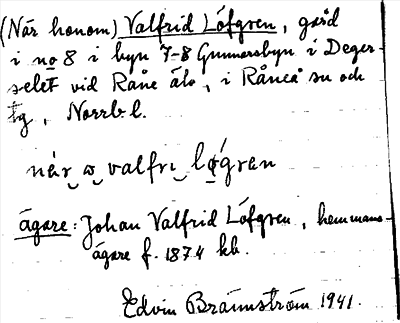 (När honom) Valfrid Löfgren, gård
i no 8 i byn 7-8 Gunnarsbyn i Deger-
selet vid Råne älv, i Råneå sn och
tg, Norrb. l.
nær ɷ valfri løgren
ägare: Johan Valfrid Löfgren, hemmans-
ägare f. 1874 kb.
Edvin Brännström 1941.